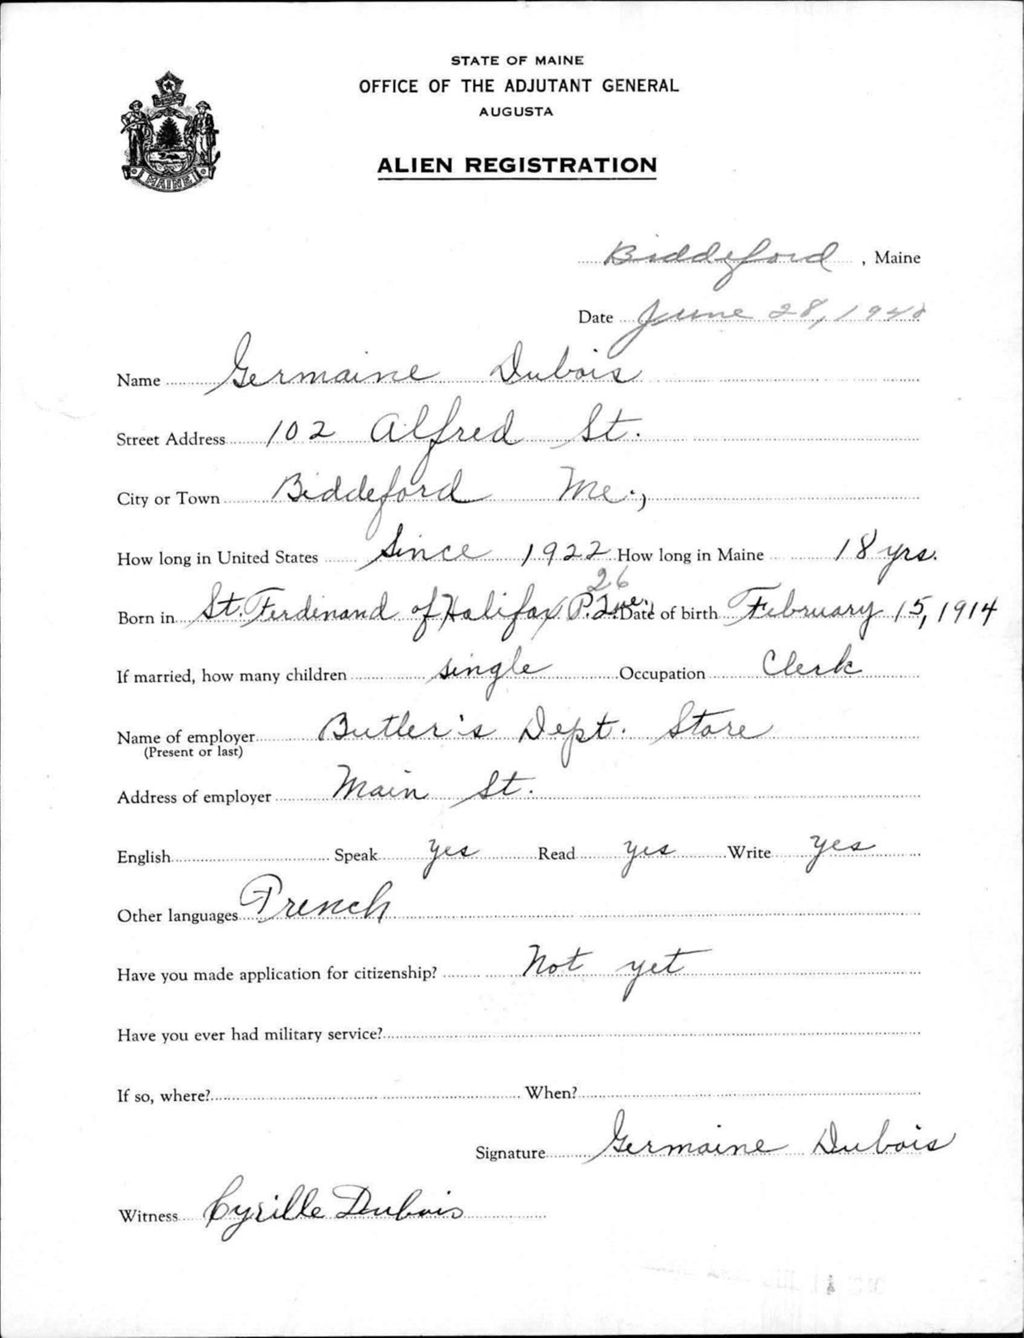 STATE OF MAINE
OFFICE OF THE ADJUTANT GENERAL
AUGUSTA
ALIEN REGISTRATION
MAINE
Biddeford, Maine
Date June 28, 1940
Name Germaine Dubois
Street Address 102 Alfred St.
City or Town Biddeford Me.,
How long in United States Since 1922 How long in Maine 18 yrs.
26
Born in St. Ferdinand of Halifax P. Que. Date of birth February 15, 1914
If married, how many children single Occupation Clerk
Name of employer Butler's Dept. Store
(Present or last)
Address of employer Main St.
English Speak yes Read yes Write yes
Other languages French
Have you made application for citizenship? Not yet
Have you ever had military service?
If so, where? When?
Signature Germaine Dubois
Witness Cyrille Dubois